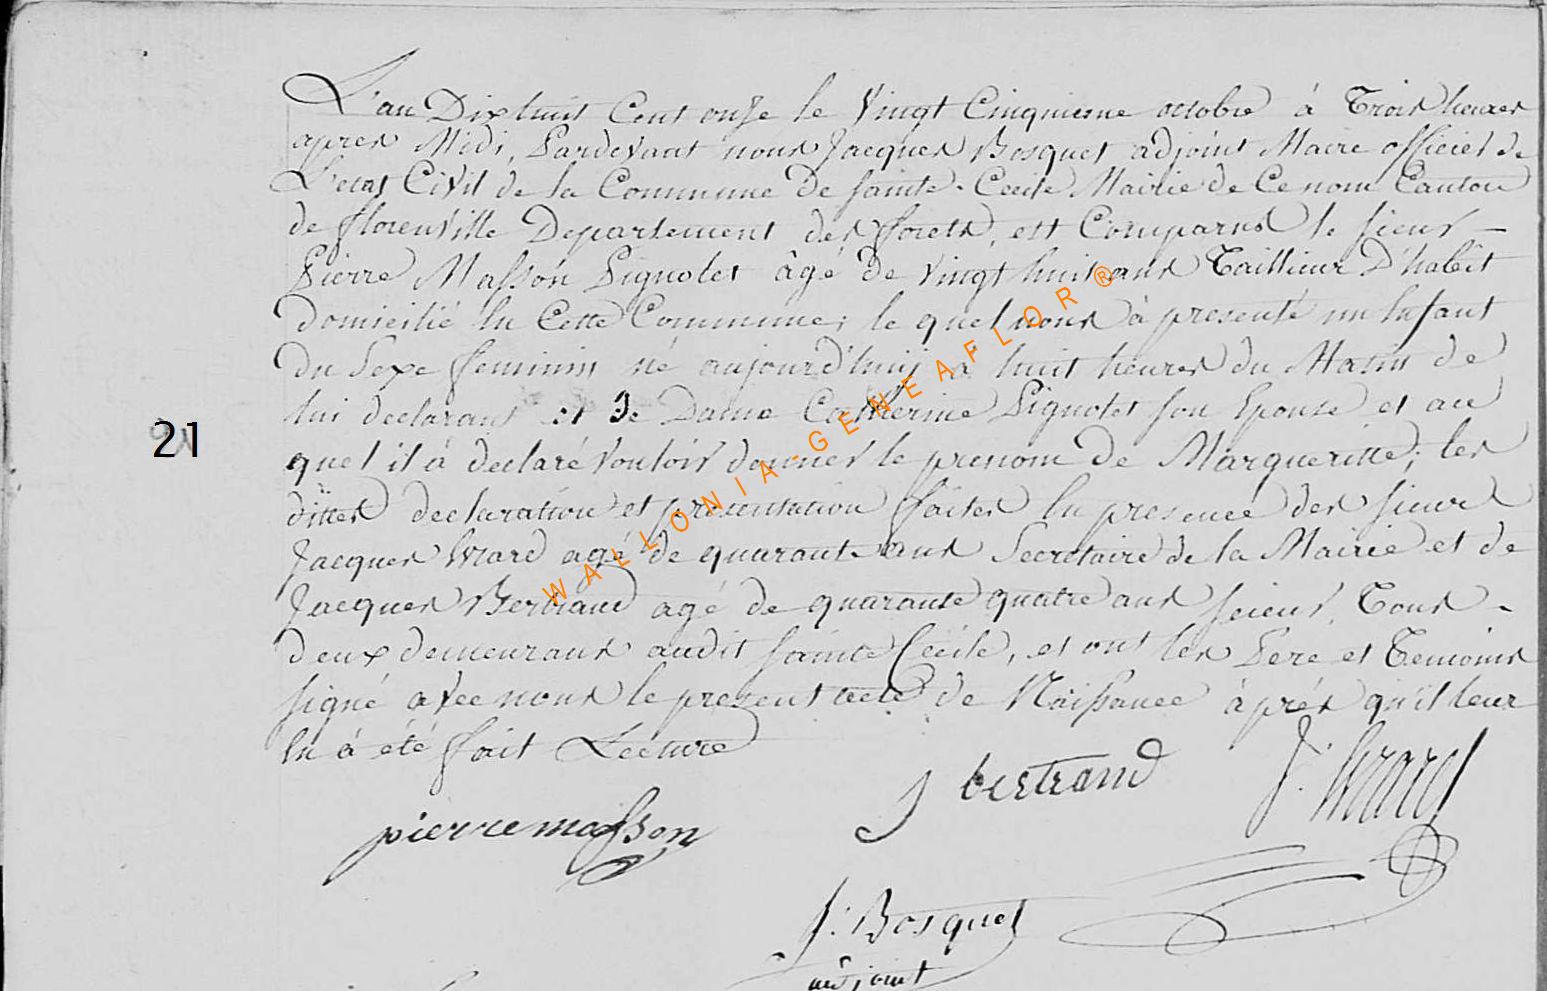 L'an Dixhuit Cent onze le Vingt Cinquiesme octobre à Trois heures
apres Midi, Pardevant nous Jacques Bosquet adjoint Maire officier de
L'etat Civil de la Commune de sainte-Cecile Mairie de Ce nom Canton
de florenville Departement des forets, est Comparus le sieur
Pierre Masson Pignolet âgé de Vingt huit ans Taillieur D'habit
domicilié En Cette Commune; le quel nous à presenté un Enfant
du Sexe feminin né aujourd'huij à huit heures du Matin de
lui declarant et De Dame Catherine Pignolet son Epouse et au
quel il à declaré vouloir donner le prenom de Margueritte; les
dittes declaration et presentation faites En presence des sieurs
Jacques Evrard agé de quarante ans Secretaire de la Mairie et de
Jacques Bertrand agé de quarante quatre ans scieur, Tous
deux demeurans audit sainte Cecile, et ont les Pere et Temoins
signé avec nous le present acte de Naissance àprés qu'il leur
En à été fait Lecture
21
J bertrand
pierre masson
J: Bosquet
adjoint
WALLONIA-GENEAFLOR®